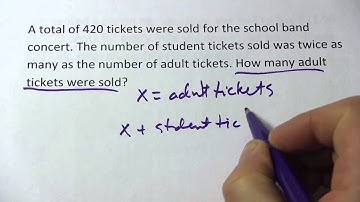 A total of 420 tickets were sold for the school band
concert. The number of student tickets sold was twice as
many as the number of adult tickets. How many adult
tickets were sold?
X = adult tickets
X + student tic